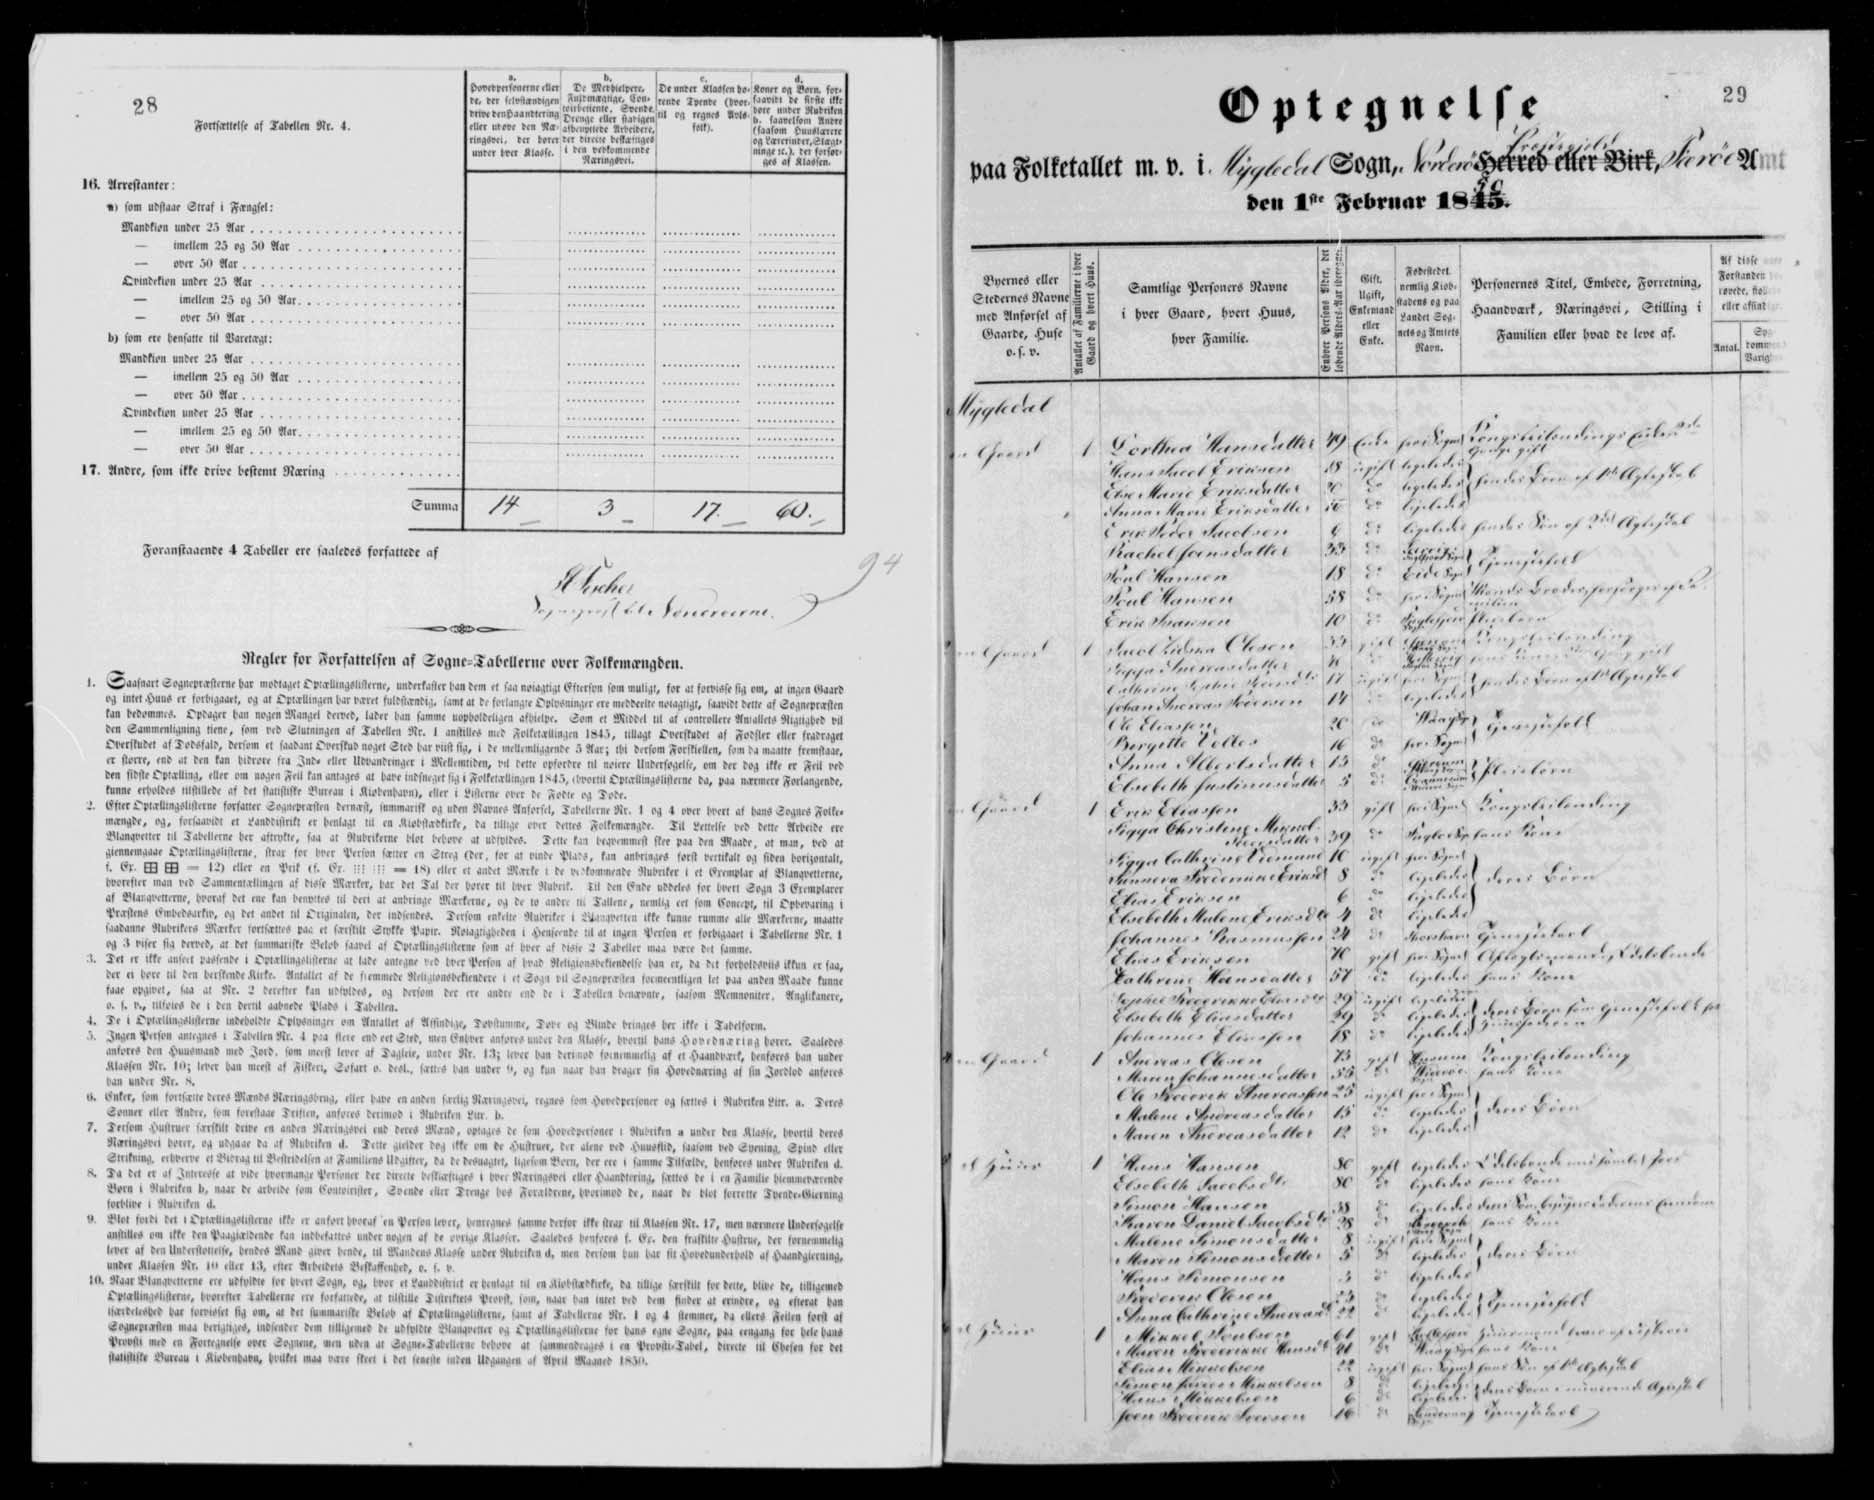 28
Fortsættelse af Tabellen Nr. 4.
a.
Hovedpersonerne eller
de, der selvstændigen
drive den Haandtering
eller udøve den Næ-
ringsvei, der hører
under hver Klasse.
b.
De Medhjelpere,
Fuldmægtige, Con-
toirbetiente, Svende,
Drenge eller stadigen
afbenyttede Arbeidere,
der directe beskæftiges
i den vedkommende
Næringsvei.
c.
De under Klassen hø-
rende Tyende (hvor-
til og regnes Avls-
folk).
d.
Koner og Børn, for-
saavidt de sidste ikke
høre under Rubriken
b. saavelsom Andre
(saasom Huuslærere
og Lærerinder, Slægt-
ninge ɾc.), der forsør-
ges af Klassen.
16. Arrestanter:
a) som udstaae Straf i Fængsel:
Mandkiøn under 25 Aar
— imellem 25 og 50 Aar
— over 50 Aar
Qvindekiøn under 25 Aar
— imellem 25 og 50 Aar
— over 50 Aar
b) som ere hensatte til Varetægt:
Mandkiøn under 25 Aar
— imellem 25 og 50 Aar
— over 50 Aar
Qvindekiøn under 25 Aar
— imellem 25 og 50 Aar
— over 50 Aar
17. Andre, som ikke drive bestemt Næring
Summa 14 3 17. 60.
Foranstaaende 4 Tabeller ere saaledes forfattede af
94
Regler for Forfattelsen af Sogne-Tabellerne over Folkemængden.
1. Saasnart Sognepræsterne har modtaget Optællingslisterne, underkaster han dem et saa nøiagtigt Eftersyn som muligt, for at forvisse sig om, at ingen Gaard
og intet Huus er forbigaaet, og at Optællingen har været fuldstændig, samt at de forlangte Oplysninger ere meddeelte nøiagtigt, saavidt dette af Sognepræsten
kan bedømmes. Opdager han nogen Mangel derved, lader han samme uopholdeligen afhielpe. Som et Middel til at controllere Antallets Rigtighed vil
den Sammenligning tiene, som ved Slutningen af Tabellen Nr. 1 anstilles med Folketællingen 1845, tillagt Overskudet af Fødsler eller fradraget
Overskudet af Dødsfald, dersom et saadant Overskud noget Sted har viist sig, i de mellemliggende 5 Aar; thi dersom Forskiellen, som da maatte fremstaae,
er større, end at den kan hidrøre fra Ind- eller Udvandringer i Mellemtiden, vil dette opfordre til nøiere Undersøgelse, om der dog ikke er Feil ved
den sidste Optælling, eller om nogen Feil kan antages at have indsneget sig i Folketællingen 1845, (hvortil Optællingslisterne da, paa nærmere Forlangende,
kunne erholdes tilstillede af det statistiske Bureau i Kiøbenhavn), eller i Listerne over de Fødte og Døde.
2. Efter Optællingslisterne forfatter Sognepræsten dernæst, summarisk og uden Navnes Anførsel, Tabellerne Nr. 1 og 4 over hvert af hans Sognes Folke-
mængde, og, forsaavidt et Landdistrikt er henlagt til en Kiøbstædkirke, da tillige over dettes Folkemængde. Til Lettelse ved dette Arbeide ere
Blanqvetter til Tabellerne her aftrykte, saa at Rubrikerne blot behøve at udfyldes. Dette kan beqvemmest skee paa den Maade, at man, ved at
giennemgaae Optællingslisterne, strax for hver Person sætter en Streg (der, for at vinde Plads, kan anbringes først vertikalt og siden horizontalt,
f. Ex. ⊞ ⊞ = 12) eller en Prik (f. Ex. ⁝⁝⁝ ⁝⁝⁝ = 18) eller et andet Mærke i de vedkommende Rubriker i et Exemplar af Blanqvetterne,
hvorefter man ved Sammentællingen af disse Mærker, har det Tal der hører til hver Rubrik. Til den Ende uddeles for hvert Sogn 3 Exemplarer
af Blanqvetterne, hvoraf det ene kan benyttes til deri at anbringe Mærkerne, og de to andre til Tallene, nemlig eet som Concept, til Opbevaring i
Præstens Embedsarkiv, og det andet til Originalen, der indsendes. Dersom enkelte Rubriker i Blanqvetten ikke kunne rumme alle Mærkerne, maatte
saadanne Rubrikers Mærker fortsættes paa et særskilt Stykke Papir. Nøiagtigheden i Henseende til at ingen Person er forbigaaet i Tabellerne Nr. 1
og 3 viser sig derved, at det summariske Beløb saavel af Optællingslisterne som af hver af disse 2 Tabeller maa være det samme.
3. Det er ikke anseet passende i Optællingslisterne at lade antegne ved hver Person af hvad Religionsbekiendelse han er, da det forholdsviis ikkun er faa,
der ei høre til den herskende Kirke. Antallet af de fremmede Religionsbekiendere i et Sogn vil Sognepræsten formeentligen let paa anden Maade kunne
faae opgivet, saa at Nr. 2 derefter kan udfyldes, og dersom der ere andre end de i Tabellen benævnte, saasom Memnoniter, Anglikanere,
o. s. v., tilføies de i den dertil aabnede Plads i Tabellen.
4. De i Optællingslisterne indeholdte Oplysninger om Antallet af Afsindige, Døvstumme, Døve og Blinde bringes her ikke i Tabelform.
5. Ingen Person antegnes i Tabellen Nr. 4 paa flere end eet Sted, men Enhver anføres under den Klasse, hvortil hans Hovednæring hører. Saaledes
anføres den Huusmand med Jord, som meest lever af Dagleie, under Nr. 13; lever han derimod fornemmelig af et Haandværk, henføres han under
Klassen Nr. 10; lever han meest af Fiskeri, Søfart o. desl., sættes han under 9, og kun naar han drager sin Hovednæring af sin Jordlod anføres
han under Nr. 8.
6. Enker, som fortsætte deres Mænds Næringsbrug, eller have en anden særlig Næringsvei, regnes som Hovedpersoner og sættes i Rubriken Litr. a. Deres
Sønner eller Andre, som forestaae Driften, anføres derimod i Rubriken Litr. b.
7. Dersom Hustruer særskilt drive en anden Næringsvei end deres Mænd, optages de som Hovedpersoner i Rubriken a under den Klasse, hvortil deres
Næringsvei hører, og udgaae da af Rubriken d. Dette gielder dog ikke om de Hustruer, der alene ved Huusflid, saasom ved Syening, Spind eller
Strikning, erhverve et Bidrag til Bestridelsen af Familiens Udgifter, da de desuagtet, ligesom Børn, der ere i samme Tilfælde, henføres under Rubriken d.
8. Da det er af Interesse at vide hvormange Personer der directe beskæftiges i hver Næringsvei eller Haandtering, sættes de i en Familie hiemmeværende
Børn i Rubriken b, naar de arbeide som Contoirister, Svende eller Drenge hos Forældrene, hvorimod de, naar de blot forrette Tyende-Gierning
forblive i Rubriken d.
9. Blot fordi det i Optællingslisterne ikke er anført hvoraf en Person lever, henregnes samme derfor ikke strax til Klassen Nr. 17, men nærmere Undersøgelse
anstilles om ikke den Paagieldende kan indbefattes under nogen af de øvrige Klasser. Saaledes henføres f. Ex. den fraskilte Hustrue, der fornemmelig
lever af den Understøttelse, hendes Mand giver hende, til Mandens Klasse under Rubriken d, men dersom hun har sit Hovedunderhold af Haandgierning,
under Klassen Nr. 10 eller 13, efter Arbeidets Beskaffenhed, o. s. v.
10. Naar Blanqvetterne ere udfyldte for hvert Sogn, og, hvor et Landdistrict er henlagt til en Kiøbstædkirke, da tillige særskilt for dette, blive de, tilligemed
Optællingslisterne, hvorefter Tabellerne ere forfattede, at tilstille Districtets Provst, som, naar han intet ved dem finder at erindre, og efterat han
isærdeleshed har forvisset sig om, at det summariske Beløb af Optællingslisterne, samt af Tabellerne Nr. 1 og 4 stemmer, da ellers Feilen først af
Sognepræsten maa berigtiges, indsender dem tilligemed de udfyldte Blanqvetter og Optællingslisterne for hans egne Sogne, paa eengang for hele hans
Provsti med en Fortegnelse over Sognene, men uden at Sogne-Tabellerne behøve at sammendrages i en Provsti-Tabel, directe til Chefen for det
statistiske Bureau i Kiøbenhavn, hvilket maa være skeet i det seneste inden Udgangen af April Maaned 1850.
29
Optegnelse
paa Folketallet m. v. i Mygledal Sogn, Norderø Herred eller Birk, Færøe Amt
den 1ste Februar 1845. 50
Byernes eller
Stedernes Navne
med Anførsel af
Gaarde, Huse
o. s. v.
Antallet af Familierne i hver
Gaard og hvert Huus.
Samtlige Personers Navne
i hver Gaard, hvert Huus,
hver Familie.
Enhver Persons Alder, det
løbende Alders-Aar iberegnet.
Gift,
Ugift,
Enkemand
eller
Enke.
Fødestedet,
nemlig Kiøb-
stadens og paa
Landet Sog-
nets og Amtets
Navn.
Personernes Titel, Embede, Forretning,
Haandværk, Næringsvei, Stilling i
Familien eller hvad de leve af.
Af disse
Forstanden
eller afsindige.
Antal.
Mygledal
Gaard 1 Dorthea Hansdatter 49 Enke her i Sognet
Hans Jacob Eriksen 38 ugift ligeledes
Else Marie Eriksdatter 20 do ligeledes hendes Børn af 1ste Ægteskab
Anna Marie Eriksdatter do ligeledes
Erik Peder Jacobsen 6 do ligeledes hendes Søn af 2det Ægteskab
Rachel Joensdatter 33 do
Poul Hansen 18 do Eide Sogn Tjenestefolk
Poul Hansen 58 do her i Sognet
Erik Isaksen 10 do Pleiebarn
Gaard 1 Jacob Olesen 53 gift Kongsleilending
Sigga Andreasdatter
Cathrine Sophie 17 ugift her i Sognet hendes Børn af Ægteskab
Johan Andreas 14 do ligeledes
Ole Eliassen 20 do
Birgitte 16 do her i Sognet Tjenestefolk
Anna Albertsdatter 13 do
Elsebeth Justinusdatter 5 do Pleiebørn
Gaard 1 Erik Eliassen 53 gift her i Sognet Kongsleilending
Sigga Christine Mikkel-
39 do hans Kone
Sigga Cathrine 10 ugift her i Sognet
Sunneva Frederikke Eriksd 8 do ligeledes deres Børn
Elias Eriksen 6 do ligeledes
Elsebeth Malene Eriksd 4 do ligeledes
Johannes Rasmussen 24 do Thorshavn Tjenestekarl
Elias Eriksen 70 gift her i Sognet
Kathrine Hansdatter 57 do ligeledes hans Kone
Sophie Frederikke Eliasd 29 ugift ligeledes
Elsebeth Eliasdatter 29 do ligeledes
Johannes Eliassen 18 do ligeledes
Gaard 1 Andreas Olesen 73 gift Kongsleilending
Maren Johannesdatter 55 do hans Kone
Ole Frederik Andreassen 25 ugift her i Sognet
Malene Andreasdatter 15 do ligeledes deres Børn
Maren Andreasdatter 12 do ligeledes
et Huus 1 Hans Hansen 80 gift ligeledes
Elsebeth Jacobsd 80 do ligeledes hans Kone
Simon Hansen 38 do ligeledes
Karen Daniel Jacobsd 28 do hans Kone
Malene Simonsdatter 8 ugift her i Sognet
Maren Simonsdatter 5 do ligeledes deres Børn
Hans Simonsen 3 do ligeledes
Frederik Olesen 23 do ligeledes Tjenestefolk
Anna Cathrine Andreasd 22 do ligeledes
et Huus 1 Mikkel Poulsen 61 gift
Maren Frederikke Hansd do hans Kone
Elias Mikkelsen 22 ugift her i Sognet hans Søn af 1ste Ægteskab
Simon Mikkelsen 8 do ligeledes
Hans Mikkelsen 6 do ligeledes
Joen Frederik 16 do Tjenestekarl